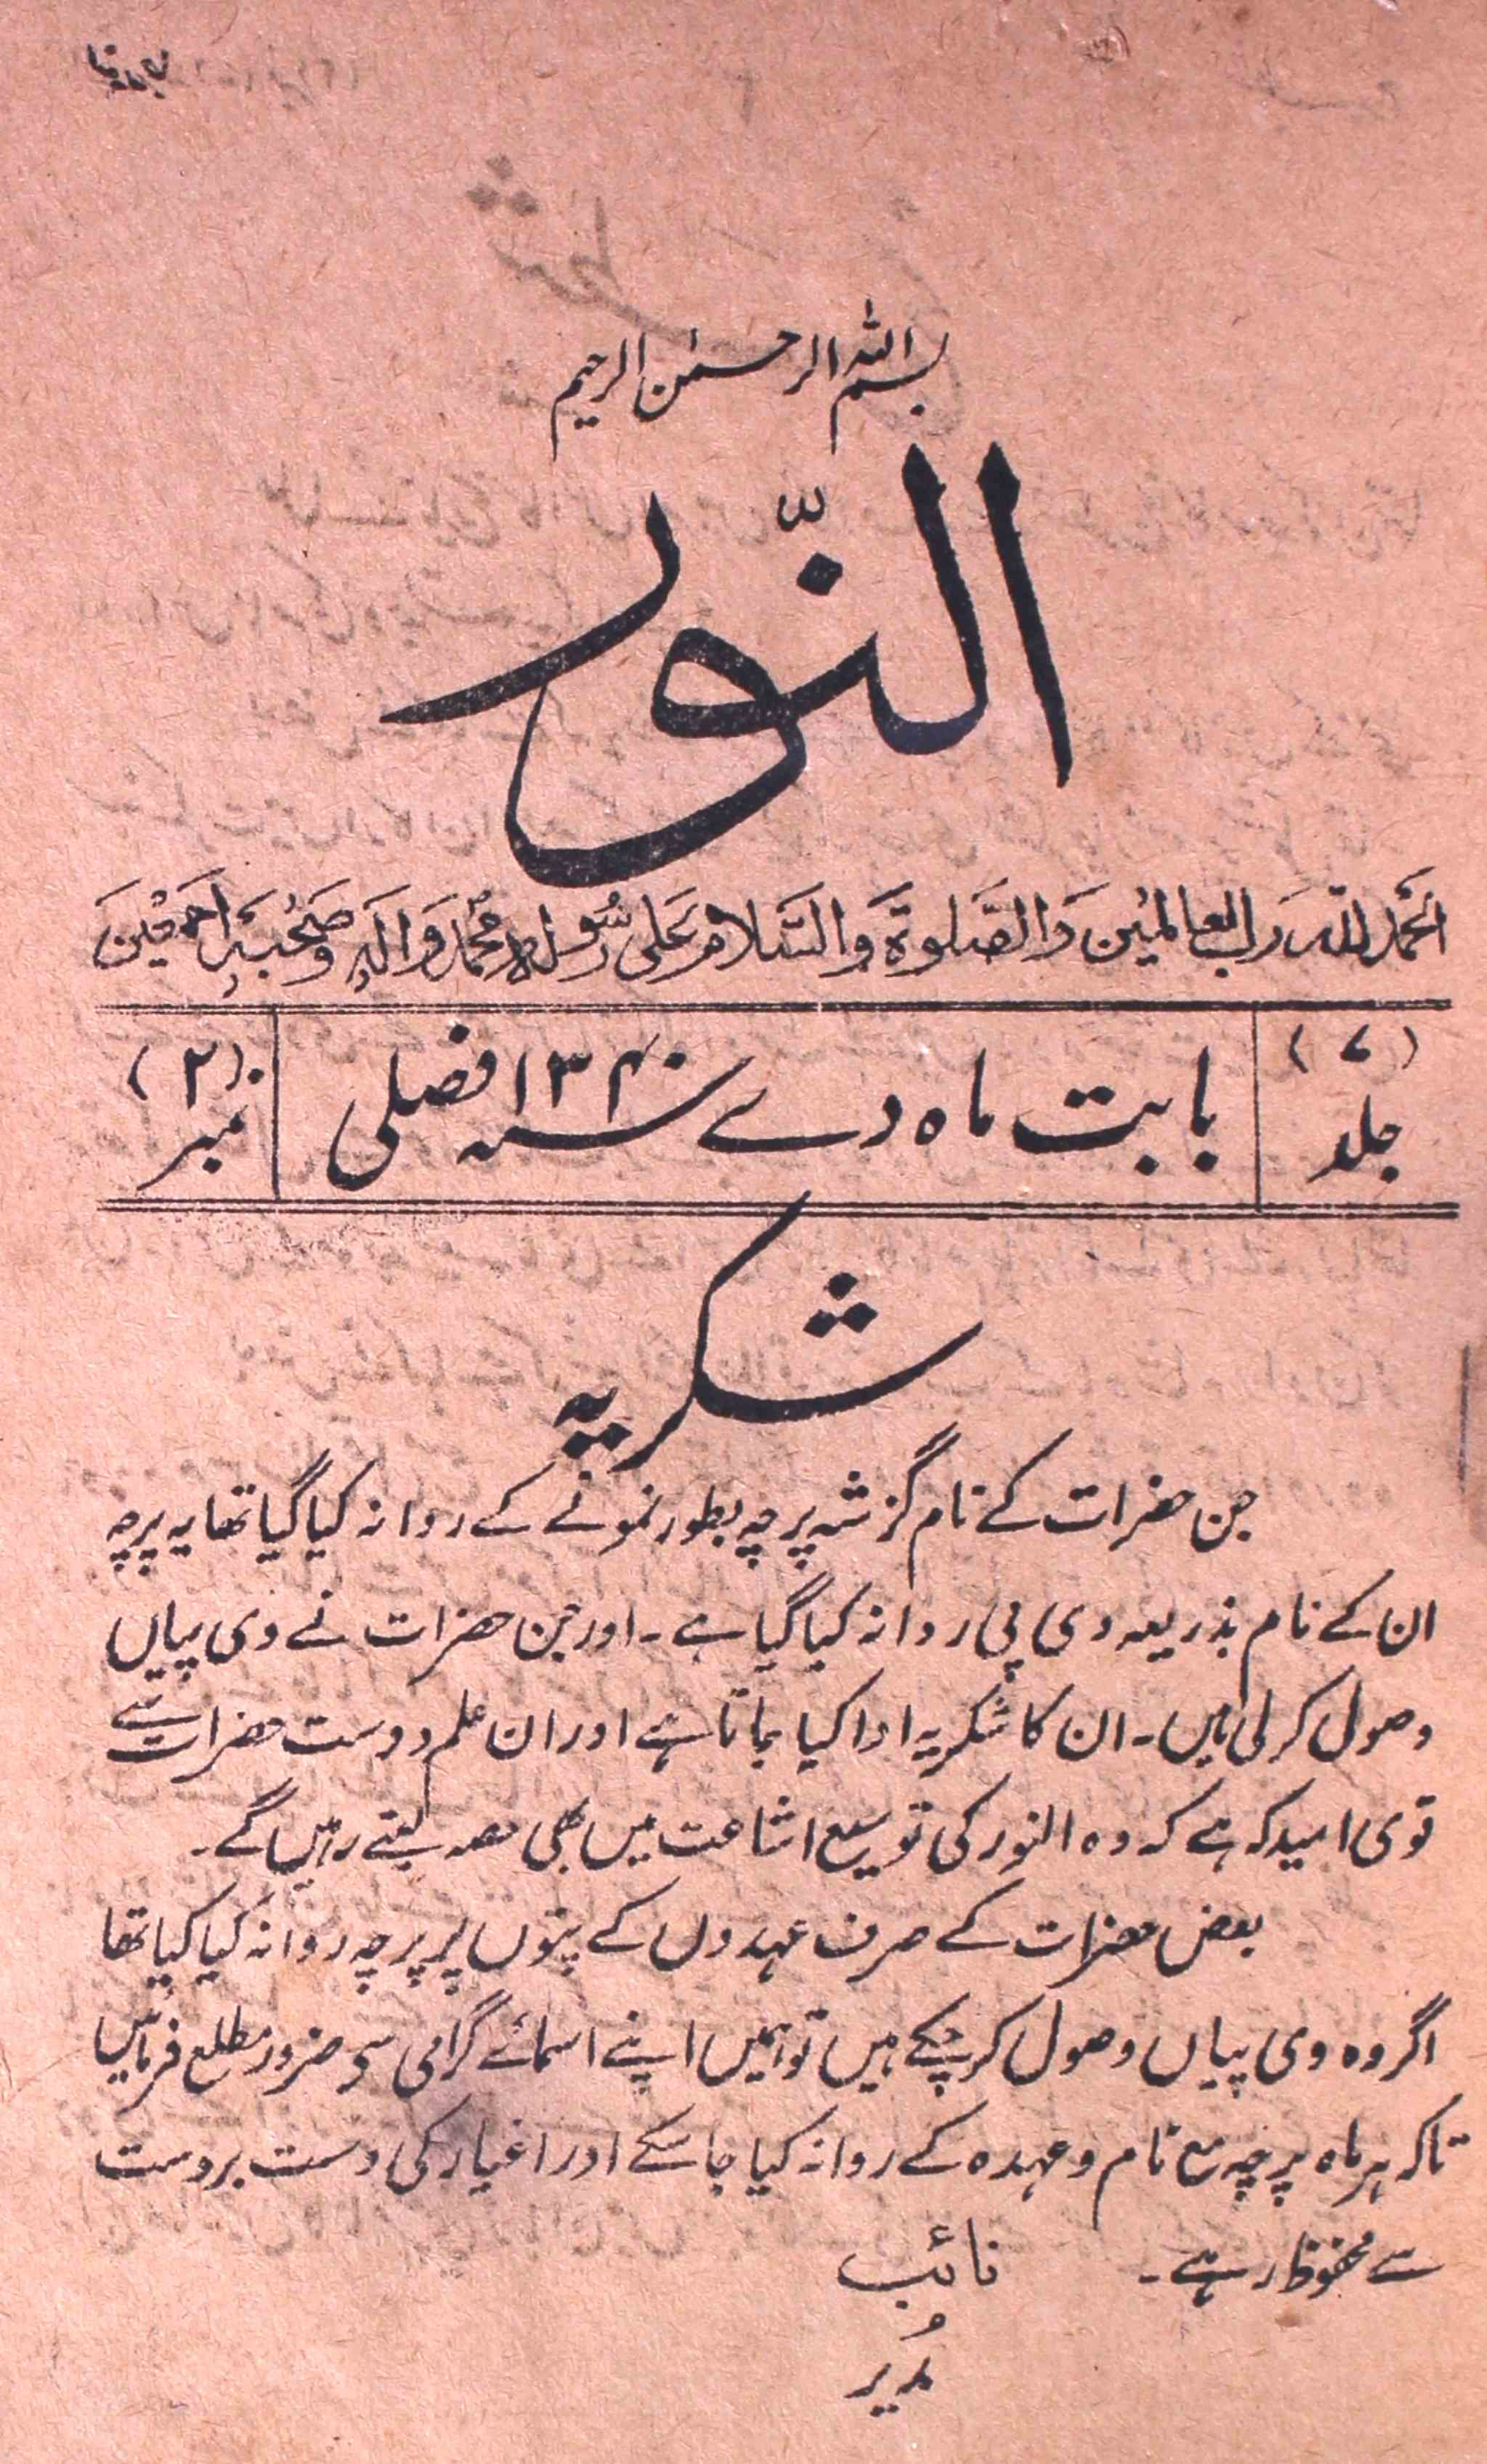 بسم الله الرحمٰن الرحیم
النّور
الحمد لله رب العالمین والصلوة والسلام علی رسوله محمد واله وصحبه اجمعین
جلد (۷) بابت ماہ دے سنہ ۱۳۴۰ فصلی نمبر (۲)
شکریہ
جن حضرات کے نام گزشتہ پرچہ بطور نمونے کے روانہ کیا گیا تھا یہ پرچہ
ان کے نام بذریعہ وی پی روانہ کیا گیا ہے۔ اور جن حضرات نے وی پیاں
وصول کرلی ہیں۔ ان کا شکریہ ادا کیا جاتا ہے اور ان علم دوست حضرات سے
قوی امید کہ ہے کہ وہ النور کی توسیع اشاعت میں بھی حصہ لیتے رہیں گے۔
بعض حضرات کے صرف عہدوں کے پتوں پر پرچہ روانہ کیا گیا تھا
اگر وہ وی پیاں وصول کرچکے ہیں تو ہمیں اپنے اسمائے گرامی سے ضرور مطلع فرمائیں
تاکہ ہر ماہ پرچہ مع نام وعہدہ کے روانہ کیا جاسکے اور اغیار کی دست بروست
سے محفوظ رہے۔ نائب
مُدیر